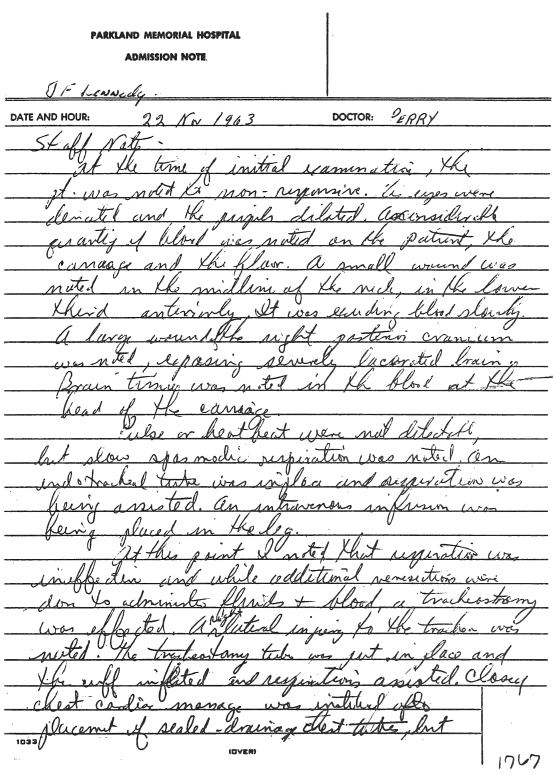 PARKLAND MEMORIAL HOSPITAL
ADMISSION NOTE
J F Kennedy.
DATE AND HOUR: 22 Nov 1963 DOCTOR: PERRY
Staff Note -
At the time of initial examination, the
pt. was noted to non-responsive. The eyes were
deviated and the pupils dilated. A considerable
quantity of blood was noted on the patient, the
carriage and the floor. A small wound was
noted in the midline of the neck, in the lower
third anteriorly. It was exuding blood slowly.
A large wound the right posterior cranium
was noted, exposing severely lacerated brain.
Brain tissue was noted in the blood at the
head of the carriage.
Pulse or heartbeat were not detectable,
but slow spasmodic respiration was noted. An
endotracheal tube was in place and respiration was
being assisted. An intravenous infusion was
being placed in the leg.
At this point I noted that respiration was
ineffective and while additional venesections were
done to administer fluids + blood, a tracheostomy
was effected. A right lateral injury to the trachea was
noted. The tracheostomy tube was put in place and
the cuff inflated and respiration assisted. Closed
chest cardiac massage was instituted after
placement of sealed-drainage chest tubes, but
1033
(OVER)
1767